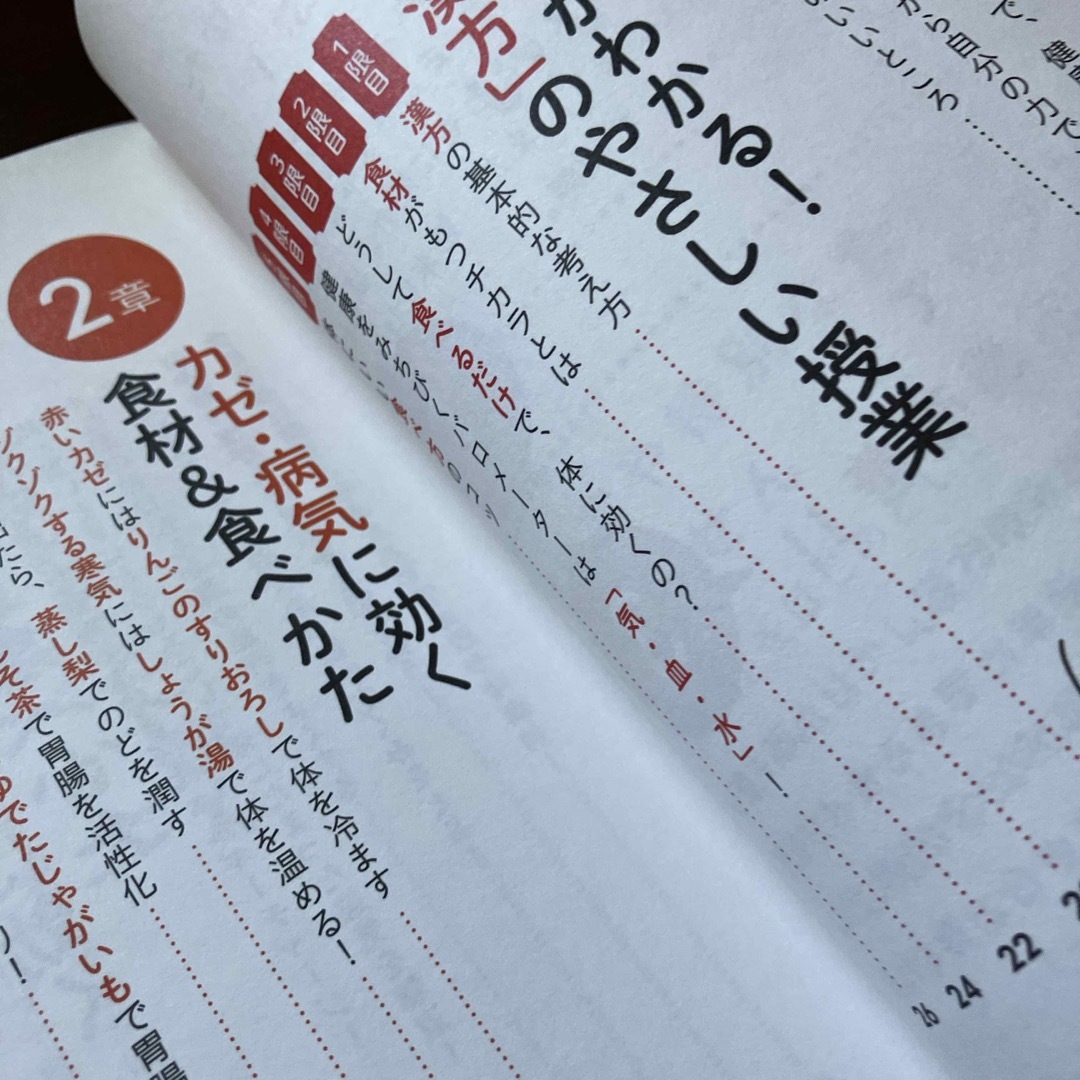 で、健
から自分の力で
いいところ
がわかる!
漢方」のやさしい授業
1限目 漢方の基本的な考え方
2限目 食材がもつチカラとは
3限目 どうして食べるだけで、体に効くの? 22
4限目 健康をみちびくバロメーターは「気・血・水」! 24
のコツ 26
2章
カゼ・病気に効く
食材&食べかた
赤いカゼにはりんごのすりおろしで体を冷ます
ゾクゾクする寒気にはしょうが湯で体を温める!
たら、蒸し梨でのどを潤す
そ茶で胃腸を活性化
ゆでたじゃがいもで胃腸
り!